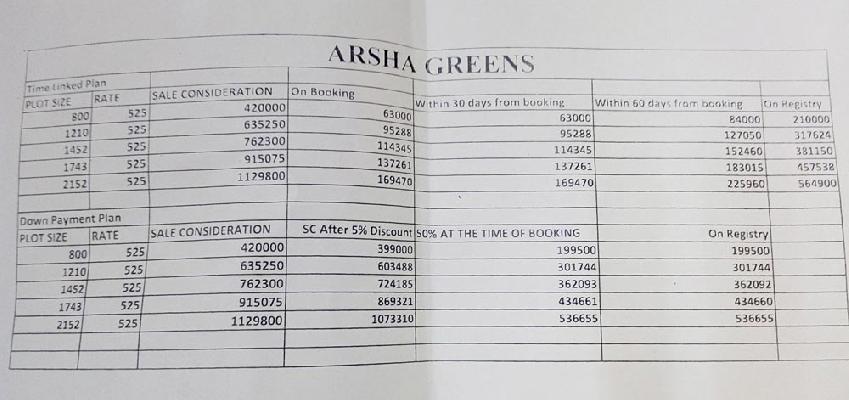 ARSHA GREENS
Time Linked Plan
PLOT SIZE RATE SALE CONSIDERATION On Booking Within 30 days from booking Within 60 days from booking On Registry
800 525 420000 63000 63000 84000 210000
1210 525 635250 95288 95288 127050 317624
1452 525 762300 114345 114345 152460 381150
1743 525 915075 137261 137261 183015 457538
2152 525 1129800 169470 169470 225960 564900
Down Payment Plan
PLOT SIZE RATE SALE CONSIDERATION SC After 5% Discount 50% AT THE TIME OF BOOKING On Registry
800 525 420000 399000 199500 199500
1210 525 635250 603488 301744 301744
1452 525 762300 724185 362093 362092
1743 525 915075 869321 434661 434660
2152 525 1129800 1073310 536655 536655